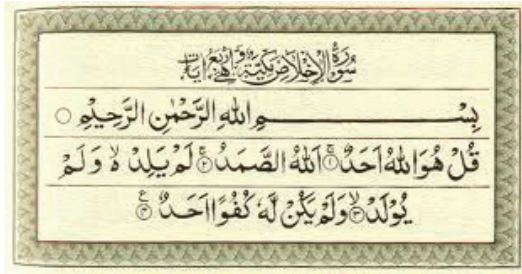 سُوْرَةُ الْاِخْلَاصِ مَكِّيَّةٌ وَّهِيَ اَرْبَعُ اٰيَاتٍ
بِسْمِ اللهِ الرَّحْمٰنِ الرَّحِيْمِ ○
قُلْ هُوَ اللهُ اَحَدٌ ۚ﴿۱﴾ اَللهُ الصَّمَدُ ۚ﴿۲﴾ لَمْ يَلِدْ ۙ وَلَمْ
يُوْلَدْ ۙ﴿۳﴾ وَلَمْ يَكُنْ لَّهٗ كُفُوًا اَحَدٌ ﴿۴﴾ ع